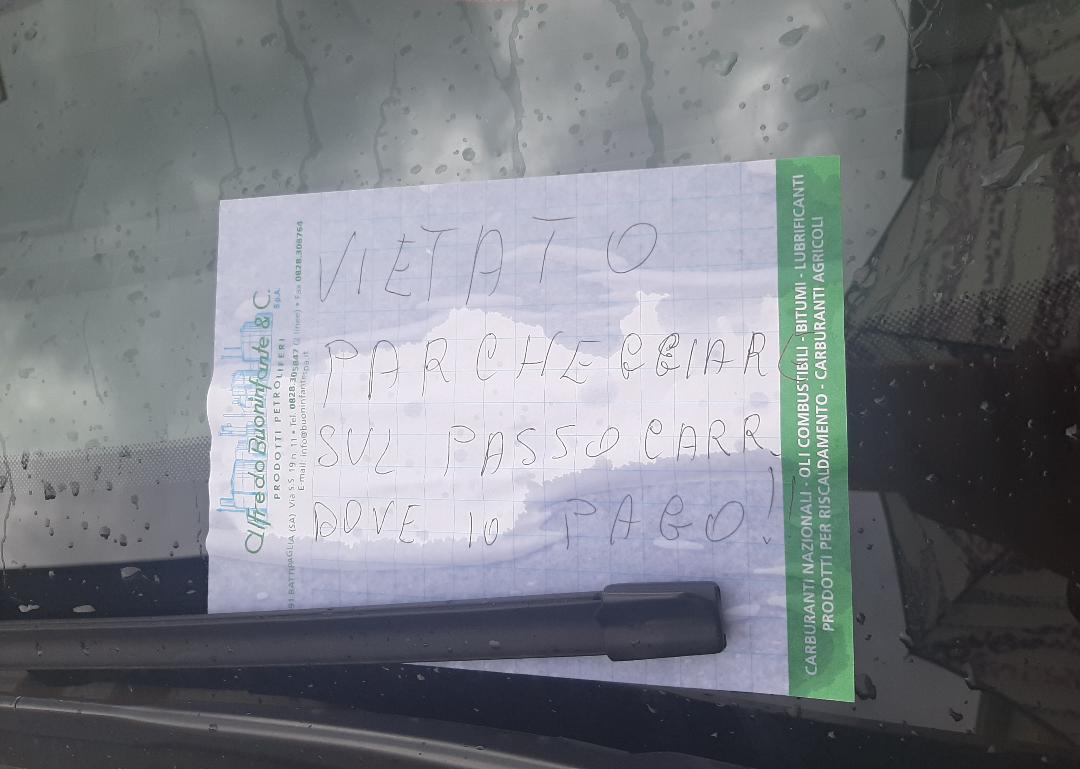 Alfredo Buoninfante & C.
S.p.A.
PRODOTTI PETROLIFERI
91 BATTIPAGLIA (SA) Via S.S. 19 n. 11 • Tel. 0828.305847 (2 linee) • Fax 0828.308764
E-mail: info@buoninfantespa.it
VIETATO
PARCHEGGIARE
SUL PASSO CARR
DOVE IO PAGO!!
CARBURANTI NAZIONALI - OLI COMBUSTIBILI - BITUMI - LUBRIFICANTI
PRODOTTI PER RISCALDAMENTO - CARBURANTI AGRICOLI